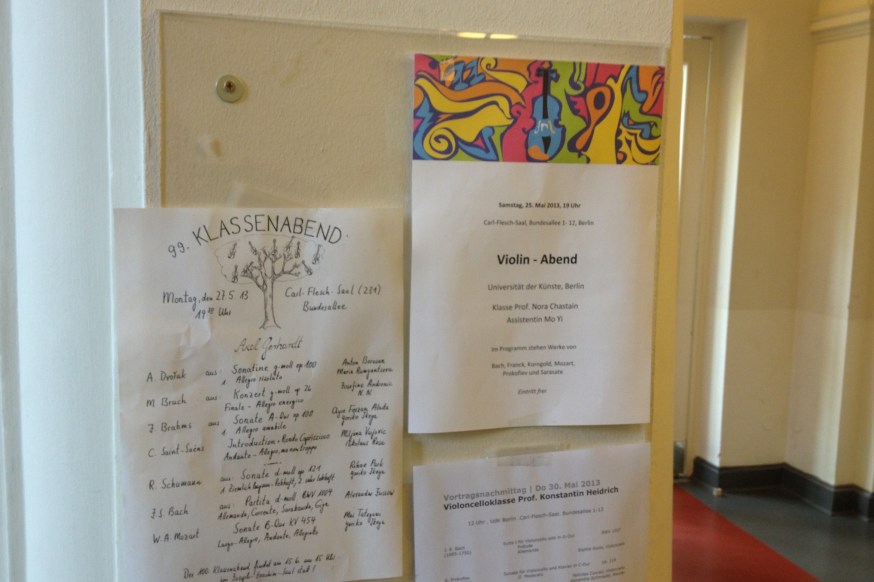 99. KLASSENABEND
Montag, den 27.5.13
19⁰⁰ Uhr
Carl-Flesch-Saal (201)
Bundesallee
Axel Gerhardt
A. Dvořák aus: Sonatine g-moll op 100
1 Allegro risoluto
M. Bruch aus: Konzert g-moll op 26
Finale - Allegro energico
N.N.
J. Brahms aus: Sonate A-Dur op 100
1 Allegro amabile
C. Saint-Saëns Introduction-Rondo Capriccioso
Andante - Allegro, ma non troppo
R. Schumann aus: Sonate d-moll op 121
J.S. Bach aus: Partita d-moll BWV 1004
Allemande, Corrente, Sarabande, Giga
W. A. Mozart Sonate B-Dur KV 454
Largo - Allegro, Andante, Allegretto
Der 100. Klassenabend findet am 15. 6. um 15 Uhr
im Joseph-Joachim-Saal statt!
Samstag, 25. Mai 2013, 19 Uhr
Carl-Flesch-Saal, Bundesallee 1- 12, Berlin
Violin - Abend
Universität der Künste, Berlin
Klasse Prof. Nora Chastain
Assistentin Mo Yi
Im Programm stehen Werke von
Bach, Franck, Korngold, Mozart,
Prokofiev und Sarasate
Eintritt frei
Vortragsnachmittag | Do 30. Mai 2013
Violoncelloklasse Prof. Konstantin Heidrich
12 Uhr - UdK Berlin, Carl-Flesch-Saal, Bundesallee 1-12
J. S. Bach